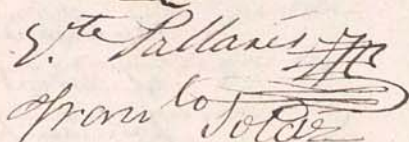 V.te Pallarés
Fran.co Solaz